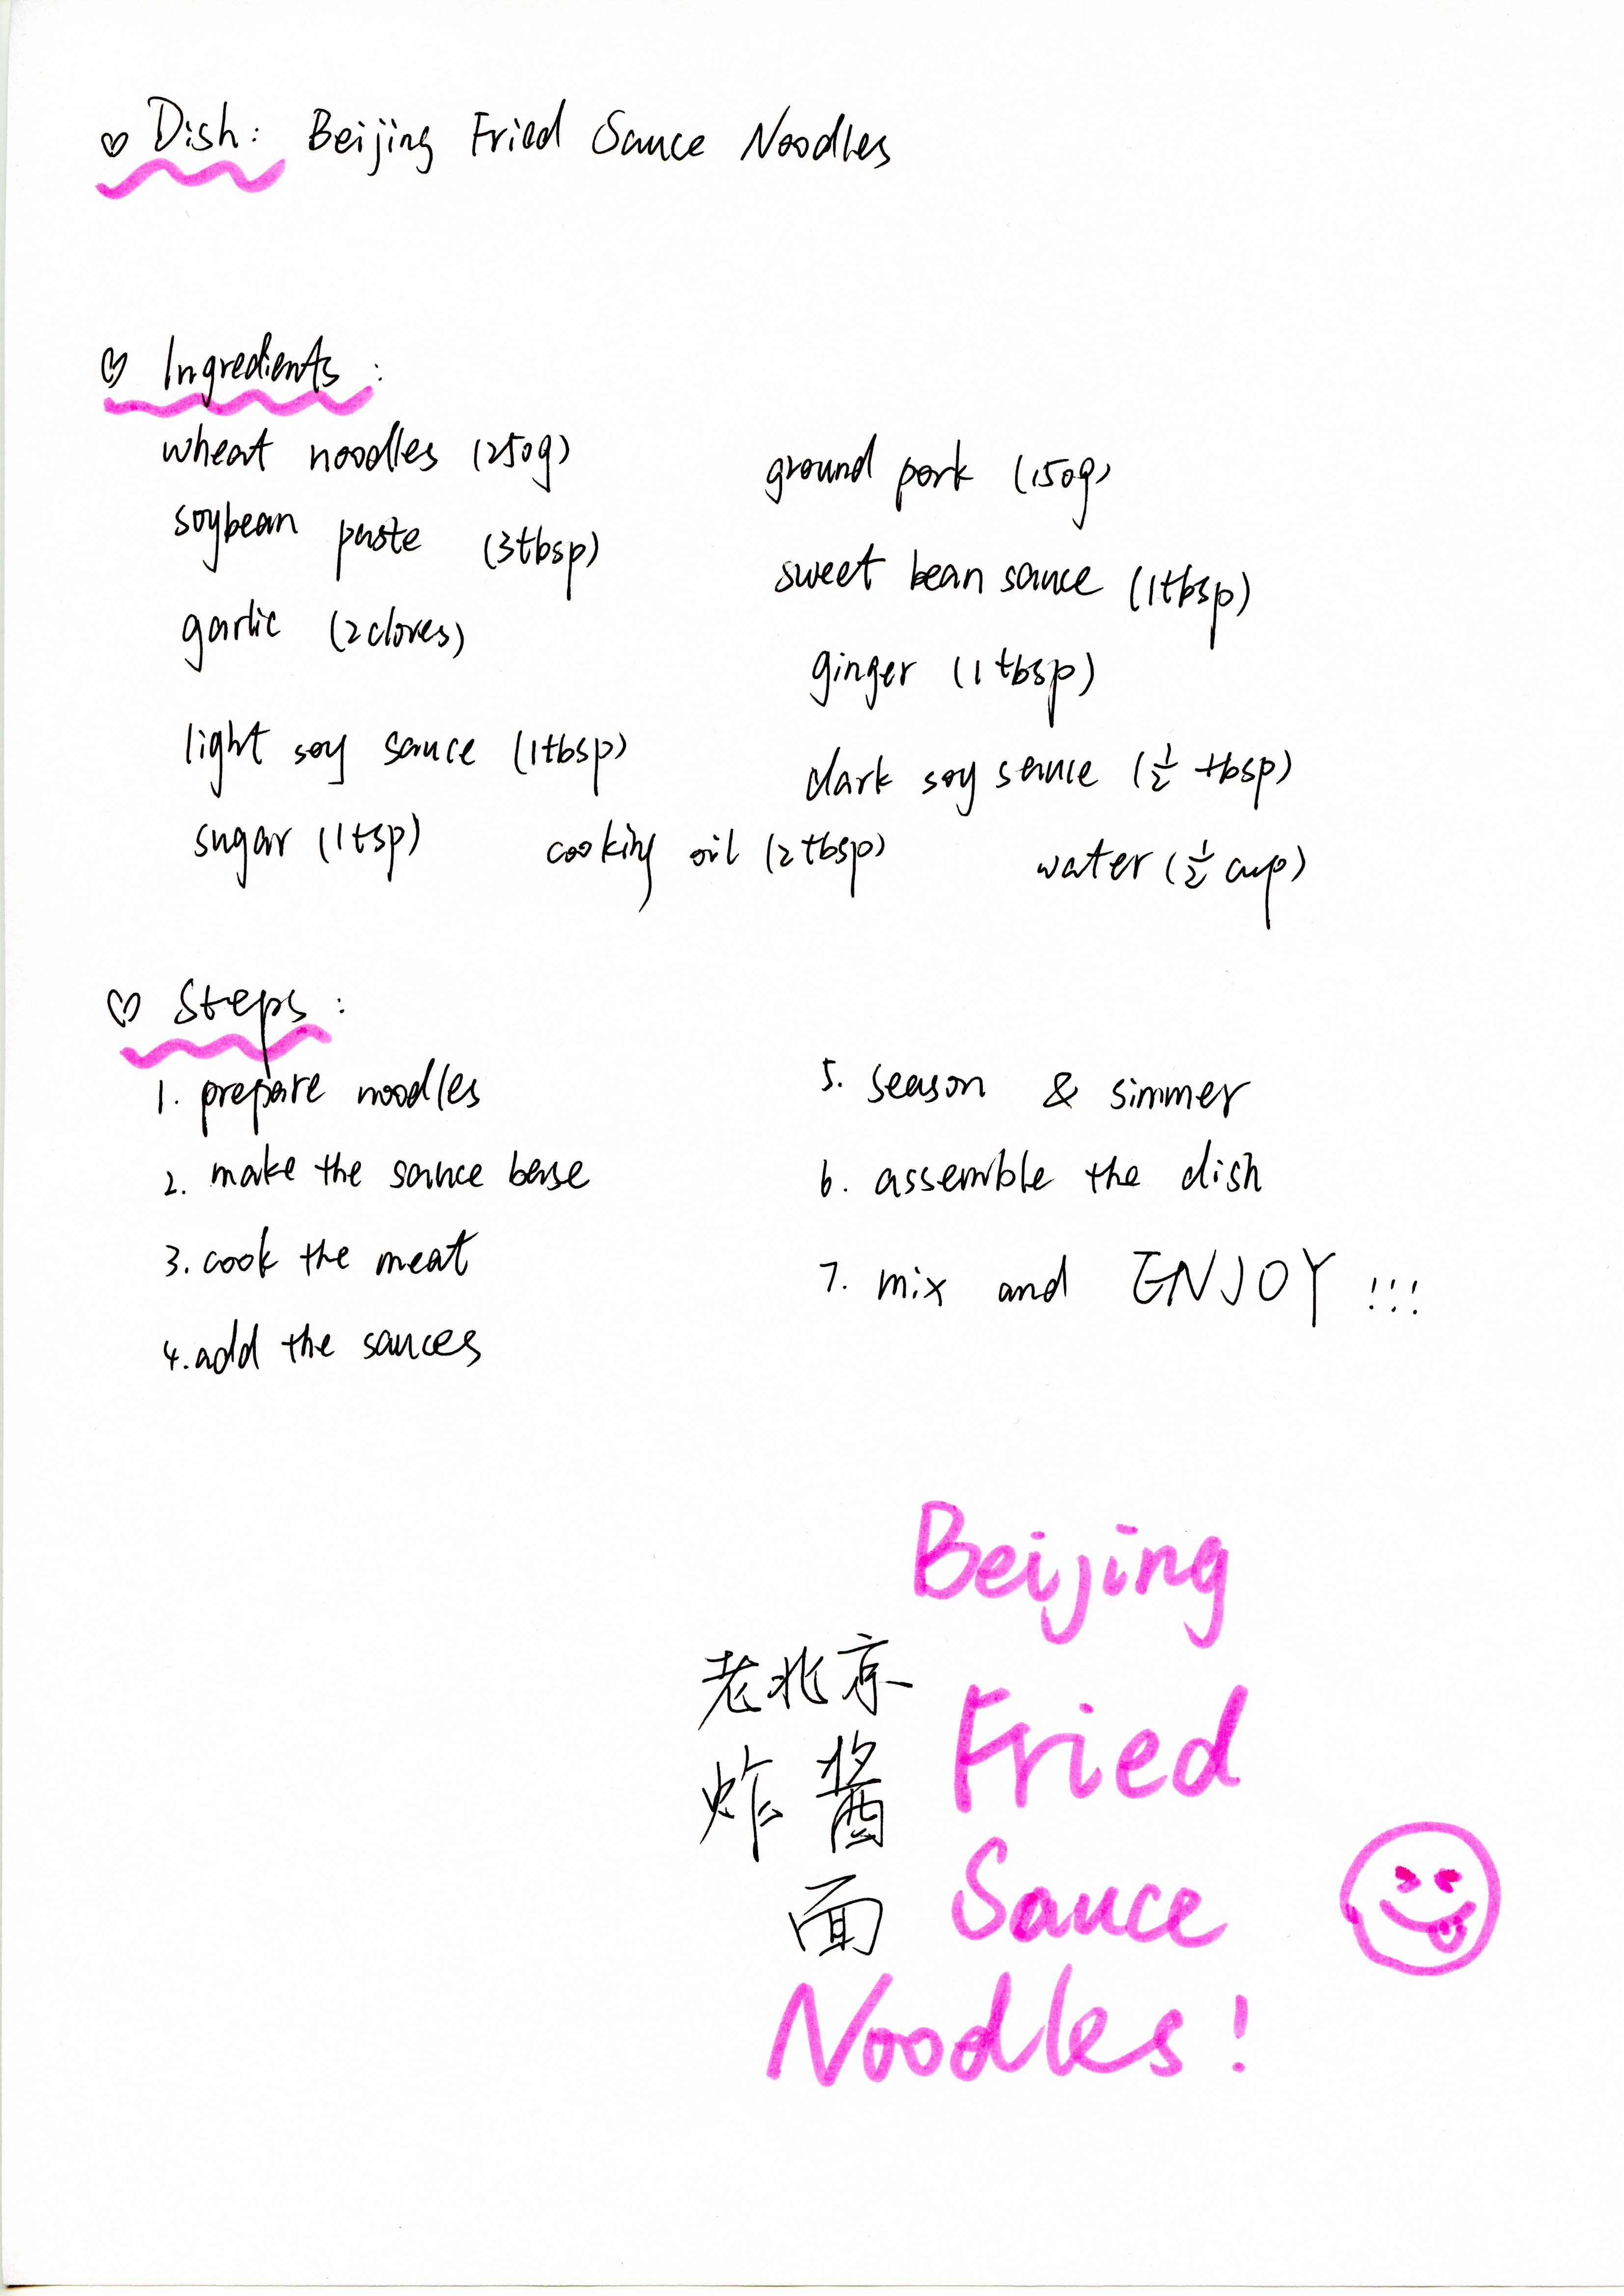 Dish: Beijing Fried Sauce Noodles
Ingredients:
wheat noodles (250g)
ground pork (150g)
soybean paste (3tbsp)
sweet bean sauce (1tbsp)
garlic (2cloves)
ginger (1tbsp)
light soy sauce (1tbsp)
dark soy sauce (½ tbsp)
sugar (1tsp) cooking oil (2tbsp) water (½ cup)
Steps:
1. prepare noodles
2. make the sauce base
3. cook the meat
4. add the sauces
5. season & simmer
6. assemble the dish
7. mix and ENJOY !!!
老北京
炸酱
面
Beijing
Fried
Sauce
Noodles!